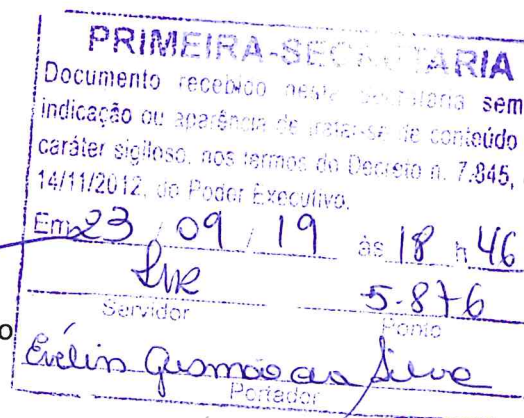 PRIMEIRA-SECRETARIA
Documento recebido nesta Secretaria sem
indicação ou aparência de tratar-se de conteúdo
caráter sigiloso, nos termos do Decreto n. 7.845,
14/11/2012, do Poder Executivo.
Em 23 / 09 / 19 às 18 h 46
5.876
Servidor Ponto
o
Evelin Gusmão da Silva
Portador